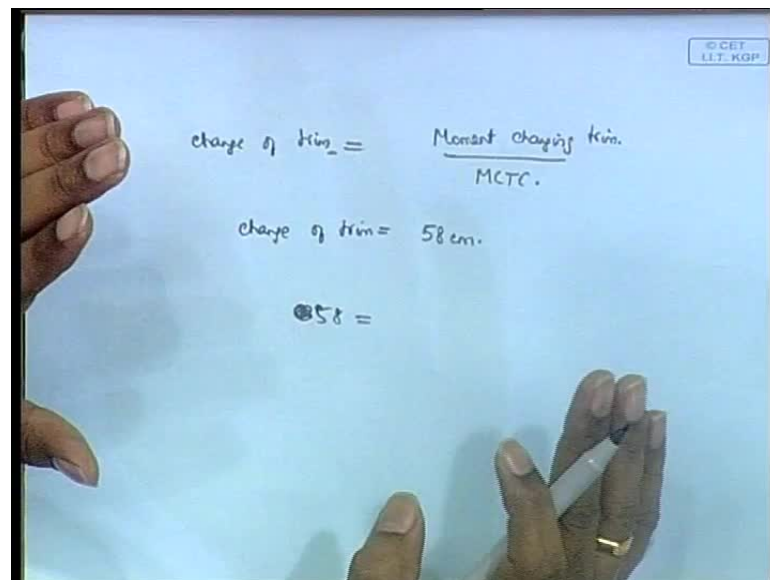 © CET
I.I.T. KGP
change of trim = Moment changing trim.
MCTC.
change of trim = 58 cm.
58 =